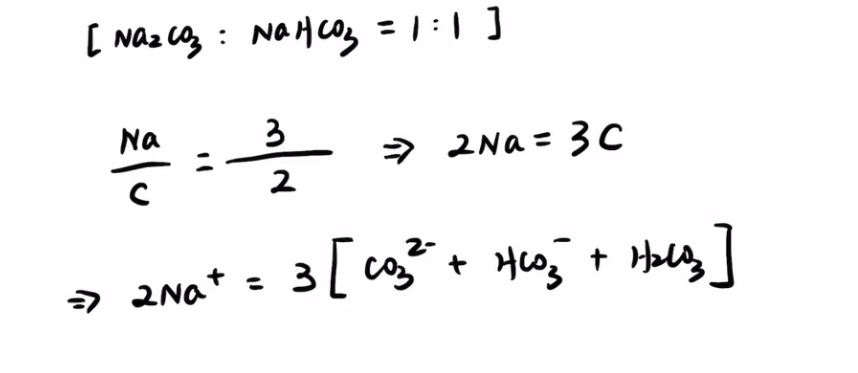 [ Na₂CO₃ : NaHCO₃ = 1 : 1 ]
Na/C = 3/2 ⇒ 2Na = 3C
⇒ 2Na⁺ = 3 [ CO₃²⁻ + HCO₃⁻ + H₂CO₃ ]